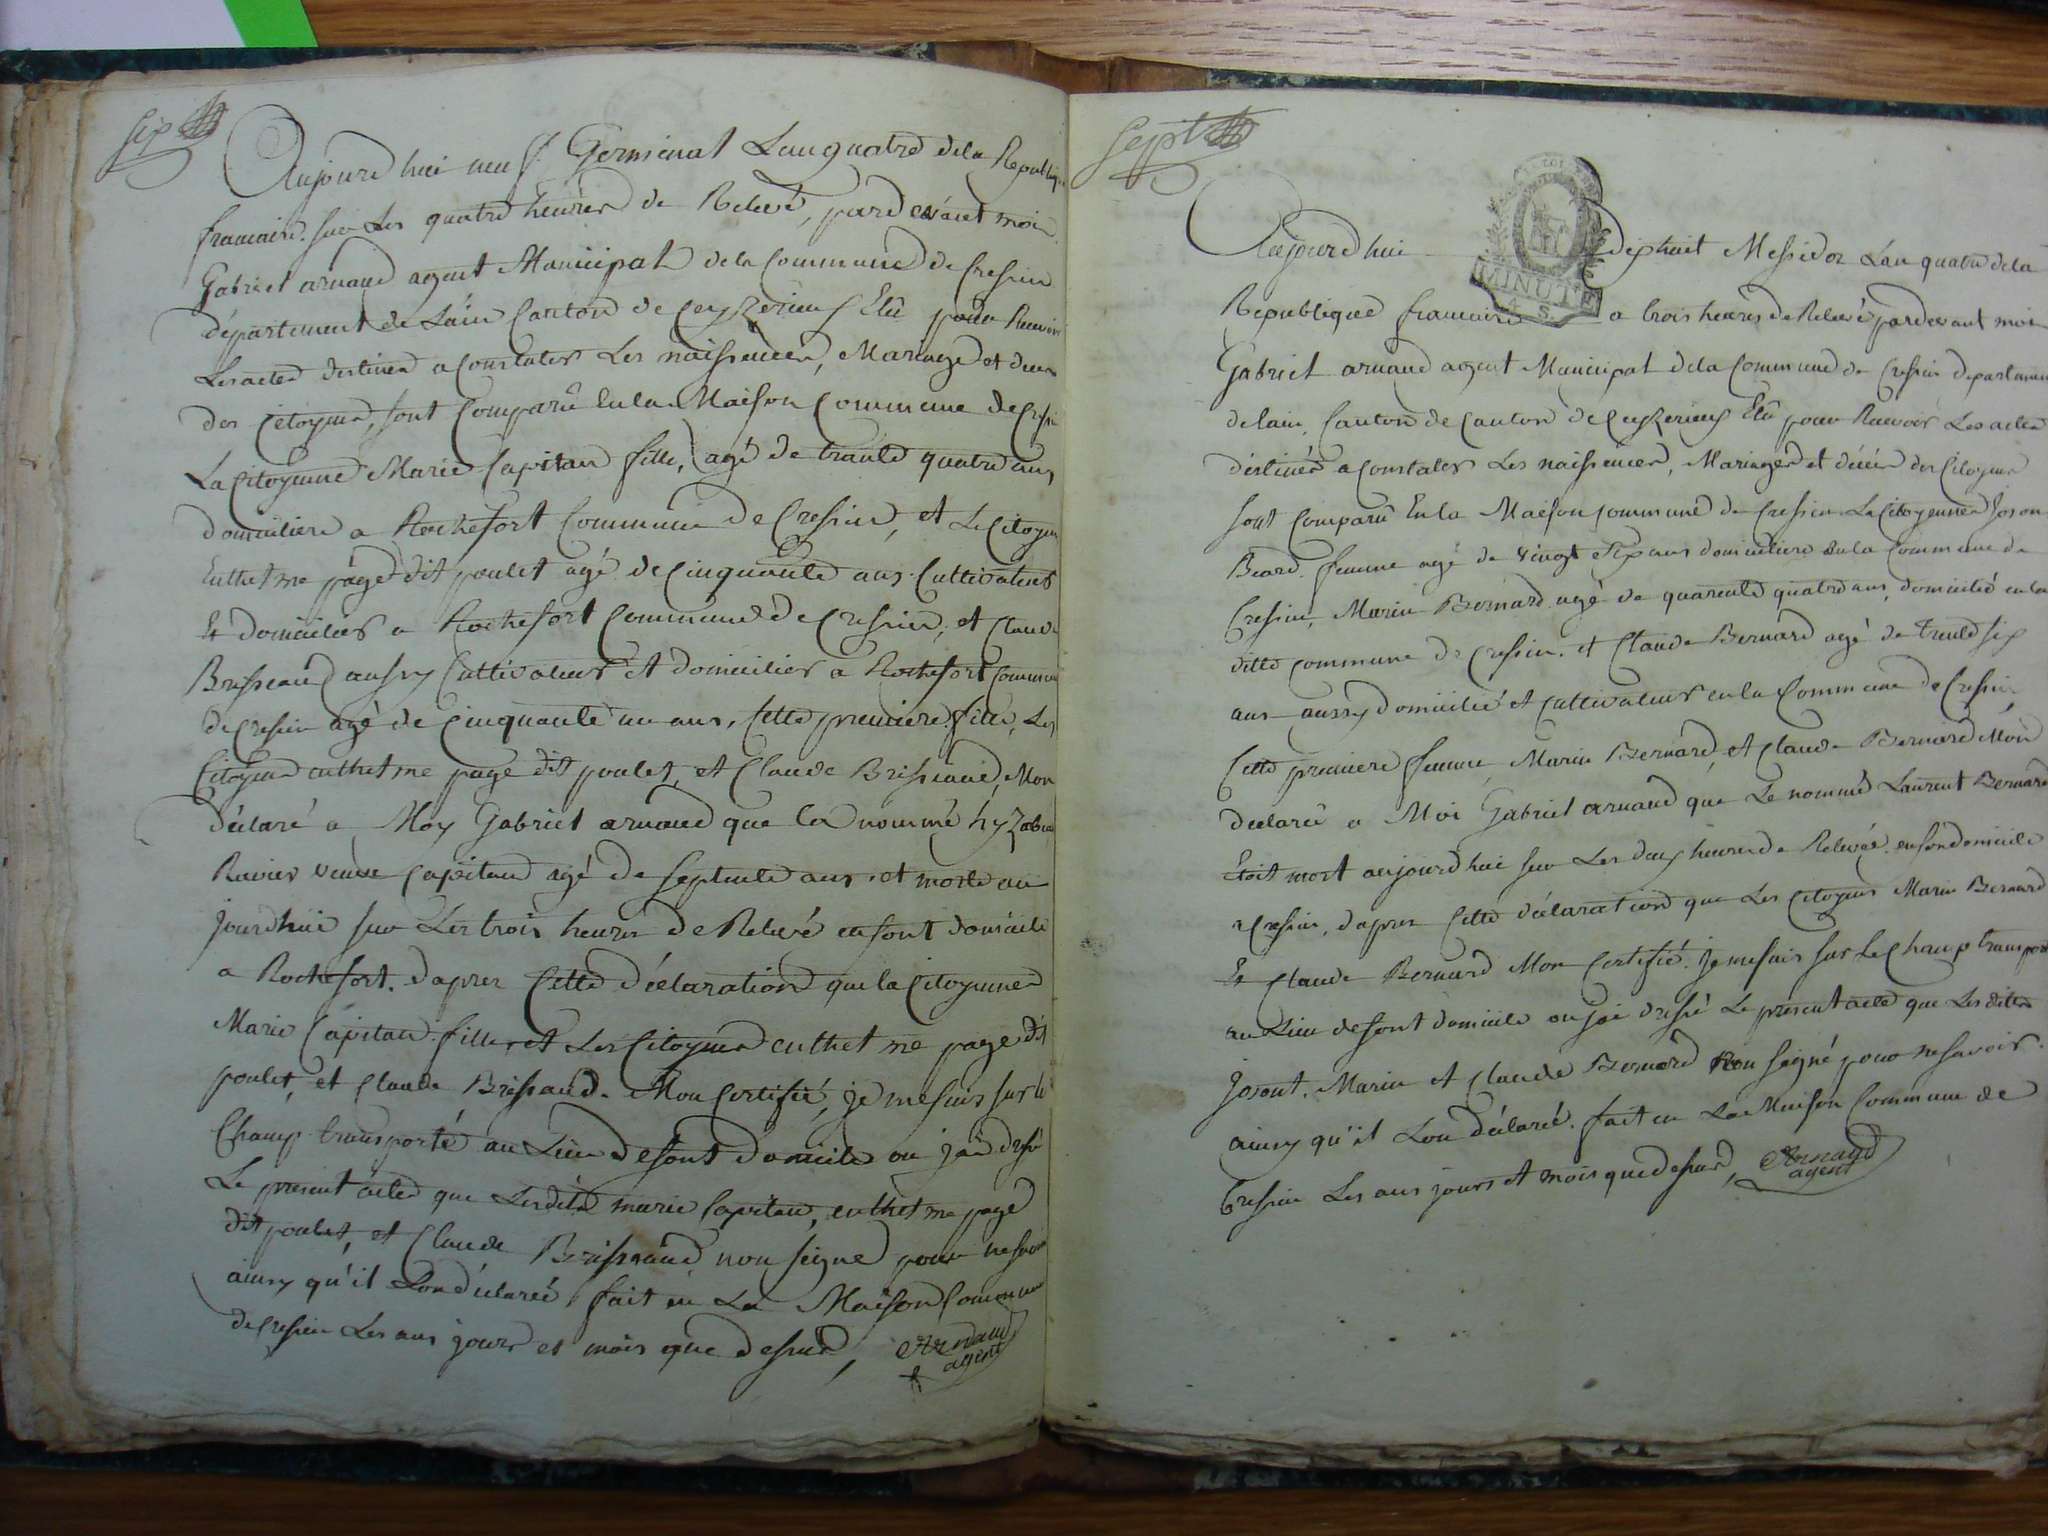 six
Aujourd hui neuf Germinal Lan quatre dela Republique
francaise. sur Les quatre heures de Relevé, pard evant moi
Gabriel arnaud agent Municipal dela Commune de Cressin
département de Lain Canton de Ceyzerieux Elû pour Recevoir
Les actes destines a Constater Les naissences, Mariage et deces
des Citoyens, sont Comparû En la Maison Commune de Cressin
La Citoyenne Marie Capitan fille, agé de trante quatre ans
domiciliere a Rochefort Commune de Cressin, et Le Citoyen
Enthetme page dit poulet agé de Cinquante ans Cultivateur
Et domicilier a Rochefort Commune de Cressin, et Claude
Brisseaud aussy Cultivateur et domicilier a Rochefort Commune
de Cressin agé de Cinquante un ans, Cette premiere fille, Les
Citoyens enthetme page dit poulet, et Claude Brissaud, Mon
déclaré a Moy Gabriel arnaud que la nommé hyzabau
Ravier veuve Capitan agé de septente ans et morte au
jourdhui sur Les trois heures de Relevé en sont domicile
a Rochefort. dapres Cette déclaration que la Citoyenne
Marie Capitan fille, et Les Citoyens enthetme page dit
poulet, et Claude Brissaud. Mon Certifié, je me suis sur le
Champ transporté au Lieu de sont domicile ou jai dressé
Le present acte que Lesdits marie Capitan, enthetme page
dit poulet, et Claude Brissaud non seigné pour ne savoir
ainsy qu'il Lon déclaré, fait en La Maison Commune
de Cressin Les ans jours et mois que dessus,
Arnaud
agent
Sept
Aujourdhui dixhuit Messidor Lan quatre dela
MINUTE
4 S.
Republique francaise a trois heures de Relevé pardevant moi
Gabriel arnaud agent Municipal dela Commune de Cressin departement
de lain, Canton de Canton de Ceyzerieux Elû pour Recevoir Les actes
déstinés a Constater Les naissences, Mariages et décés des Citoyens
sont Comparû En la Maison commune de Cressin La Citoyenne Joson
Beard. femme agé de vingt sept ans domiciliere En la Commune de
Cressin, Marin Bernard agé de quarente quatre ans, domicilié en la
ditte commune de Cressin. et Claude Bernard agé de trente six
ans aussy domicilié et Cultivateur en la Commune de Cressin,
Cette premiere femme, Marin Bernard, et Claude Bernard Mon
declaré a Moi Gabriel arnaud que Le nommé Laurent Bernard
Etoit mort aujourdhui sur Les deux heures de Relevée en son domicile
a Cressin, dapres Cette déclaration que Les Citoyens Marin Bernard
Et Claude Bernard Mon Certifié. je me suis sur Le Champ transporté
au Lieu de sont domicile ou jai dressé Le present acte que Lesdittes
Josont, Marin et Claude Bernard Non seigné pour ne savoir.
ainsy qu'il Lon déclaré. fait en La Maison Commune de
Cressin Les ans jours et mois que dessus,
Arnaud
agent